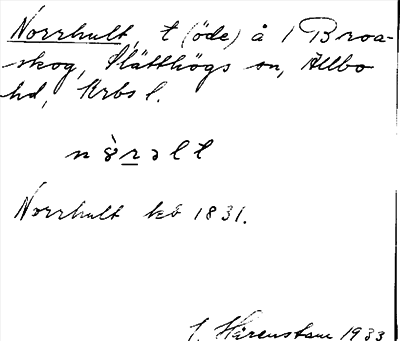 Norrhult, t (öde) å 1 Broa-
skog, Slätthögs sn, Allbo
hd, Krbs l.
Norrhult kb 1831.
J. Hårenstam 1933